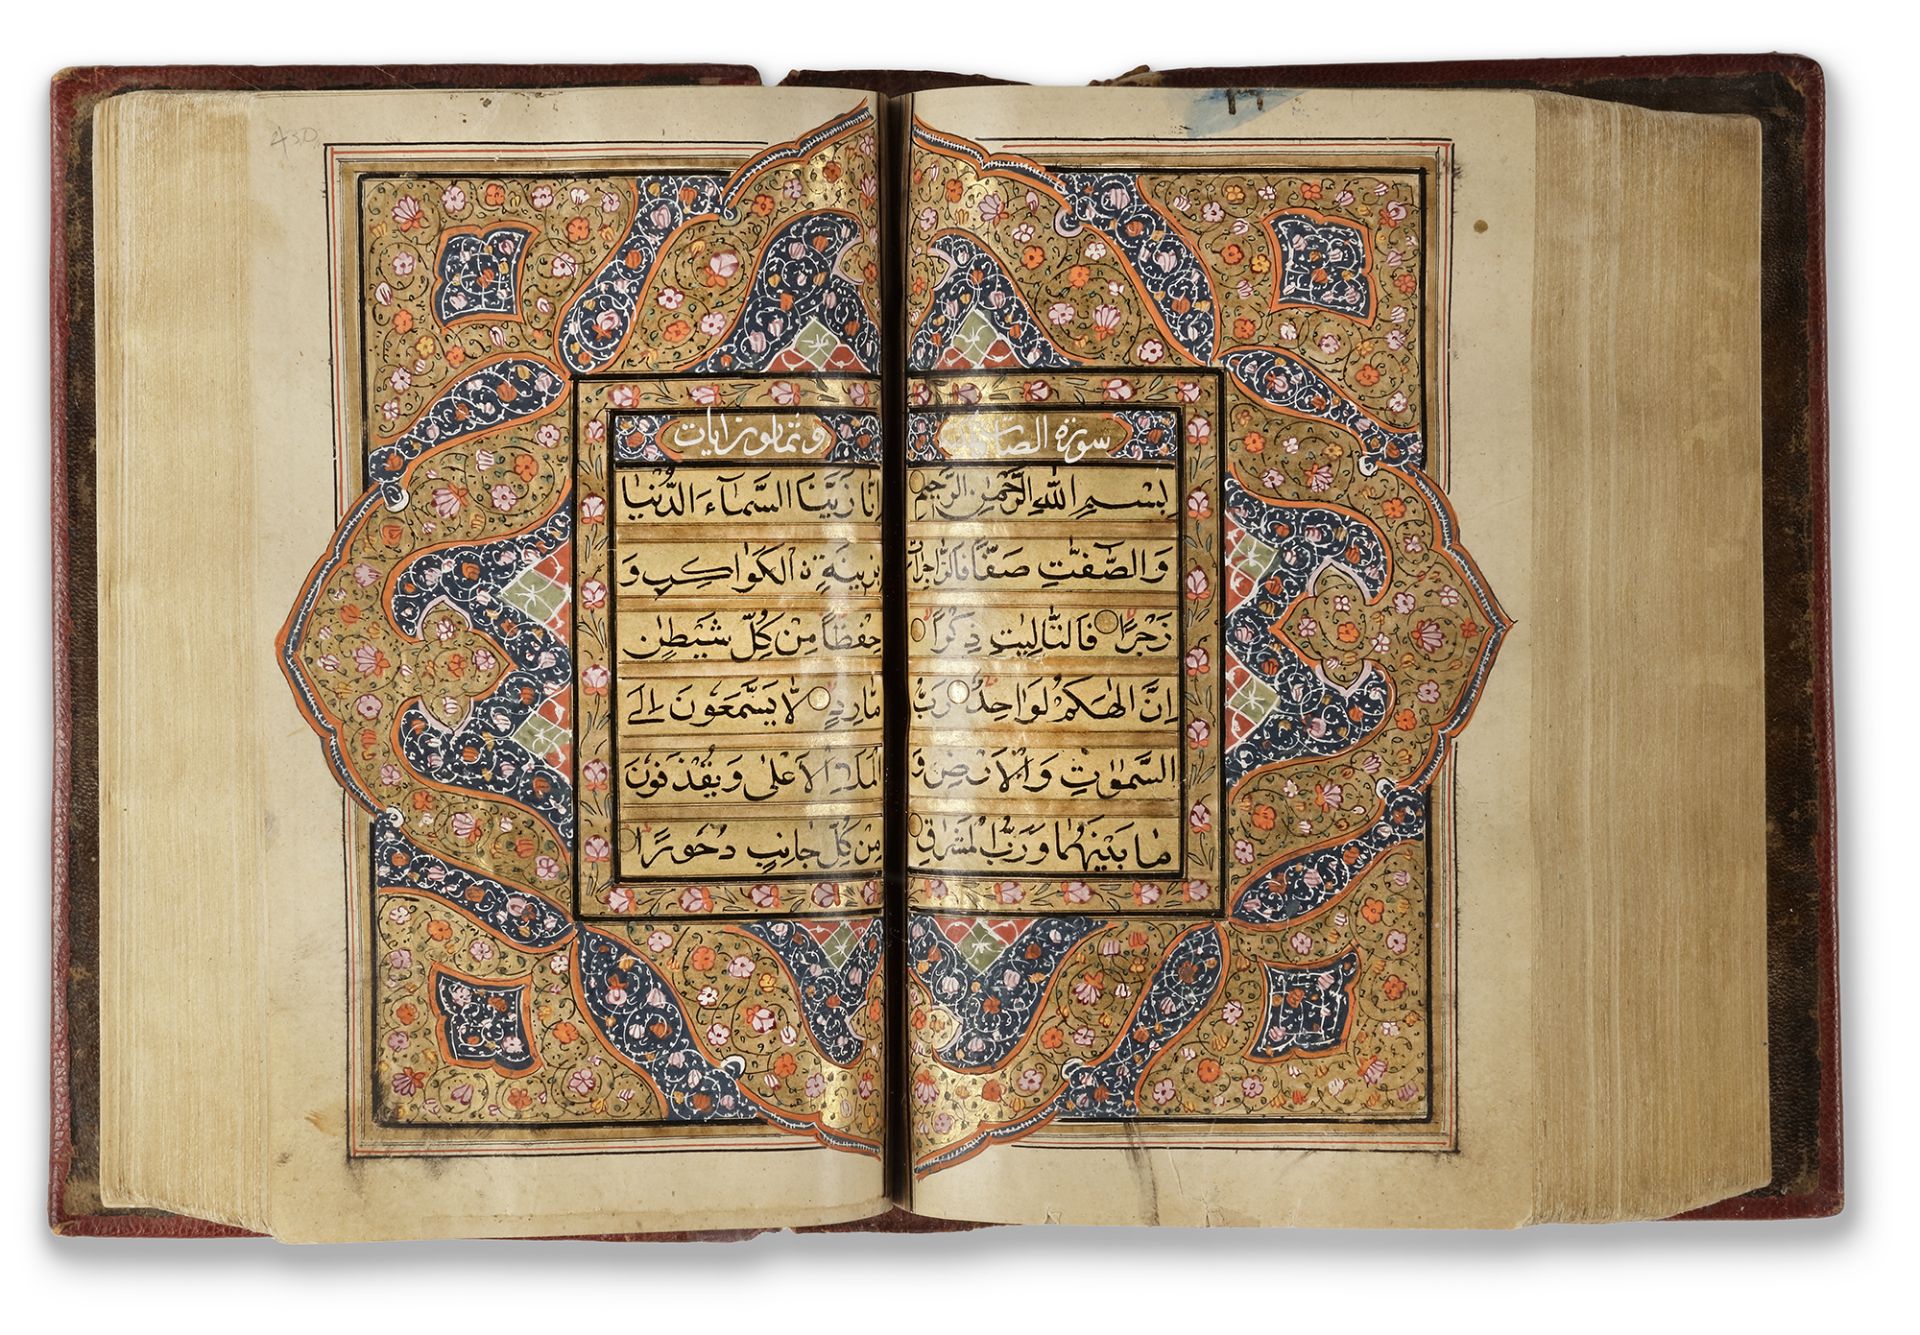 سورة الصافات
بِسْمِ اللّٰهِ الرَّحْمٰنِ الرَّحِيمِ
وَالصّٰفّٰتِ صَفًّا فَالزّٰجِرَاتِ
زَجْرًا فَالتّٰلِيٰتِ ذِكْرًا
اِنَّ اِلٰهَكُمْ لَوَاحِدٌ رَبُّ
السَّمٰوٰتِ وَالْاَرْضِ وَ
مَا بَيْنَهُمَا وَرَبُّ الْمَشَارِقِ
اِنَّا زَيَّنَّا السَّمَآءَ الدُّنْيَا
بِزِينَةٍ ۨالْكَوَاكِبِ وَ
حِفْظًا مِنْ كُلِّ شَيْطٰنٍ
مَارِدٍ لَا يَسَّمَّعُونَ اِلَى
الْمَلَاِ الْاَعْلٰى وَيُقْذَفُونَ
مِنْ كُلِّ جَانِبٍ دُحُورًا
430